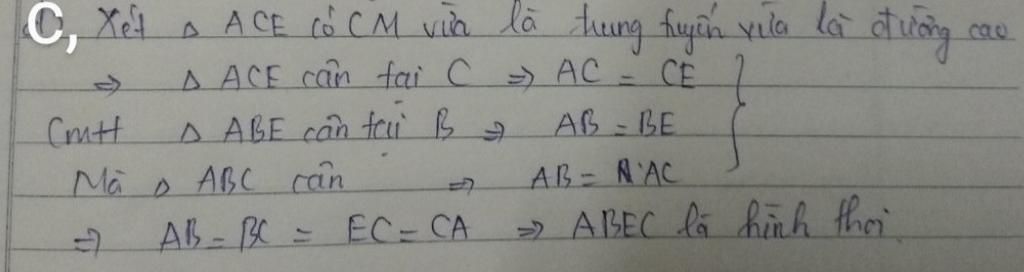 C, Xét △ ACE có CM vừa là trung tuyến vừa là đường cao
⇒ △ ACE cân tại C ⇒ AC = CE
CmH △ ABE cân tại B ⇒ AB = BE
Mà △ ABC cân ⇒ AB = AC
⇒ AB = BC = EC = CA ⇒ ABEC là hình thoi.